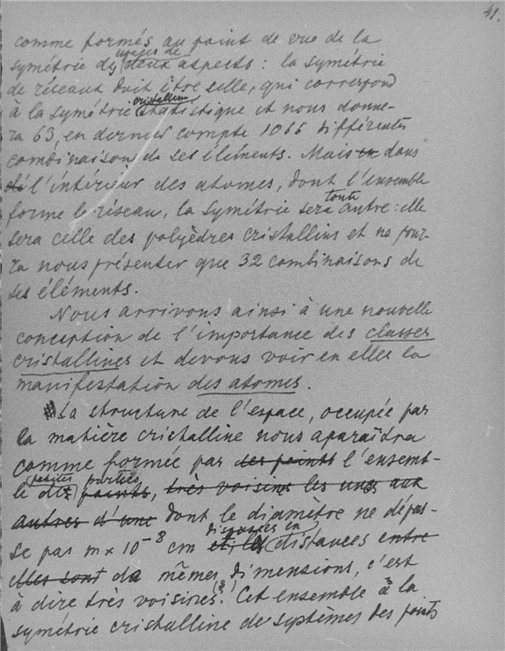 41.
comme formés au point de vue de la
symétrie de deux aspects : la symétrie
de réseaux doit être celle, qui correspond
à la symétrie cristalline statistique et nous donne-
ra 63, en dernier compte 1066 différentes
combinaison de ses éléments. Mais en dans
l'intérieur des atomes, dont l'ensemble
forme le réseau, la symétrie sera toute autre : elle
sera celle des polyèdres cristallins et ne pour-
ra nous présenter que 32 combinaisons de
ses éléments.
Nous arrivons ainsi à une nouvelle
conception de l'importance des classes
cristallines et devons voir en elles la
manifestation des atomes.
La structure de l'espace, occupée par
la matière cristalline nous aparaîtra
comme formée par des points l'ensemb-
le de petites parties points, très voisins les uns aux
autres d'une dont le diamètre ne dépas-
se pas m x 10⁻⁸ cm disposées en distances entre
elles sont de mêmes dimensions, c'est
à dire très voisines. Cet ensemble à la
symétrie cristalline de systèmes des points